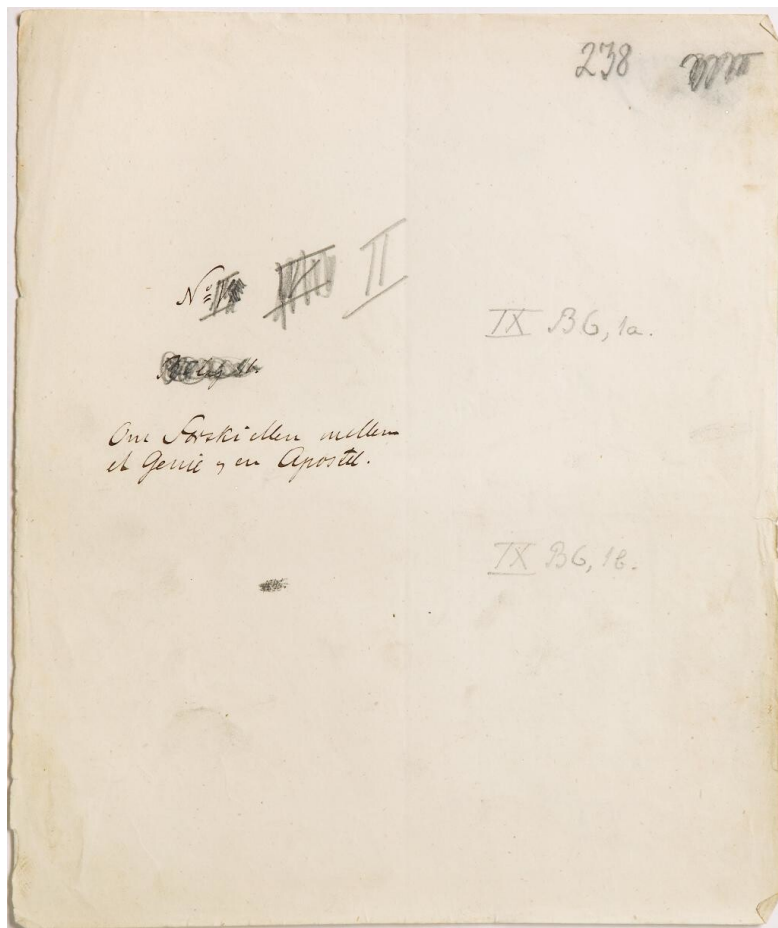 238
No II
IX B 6, 1a.
Om Forskiellen mellem
et Genie og en Apostel.
IX B 6, 1b.